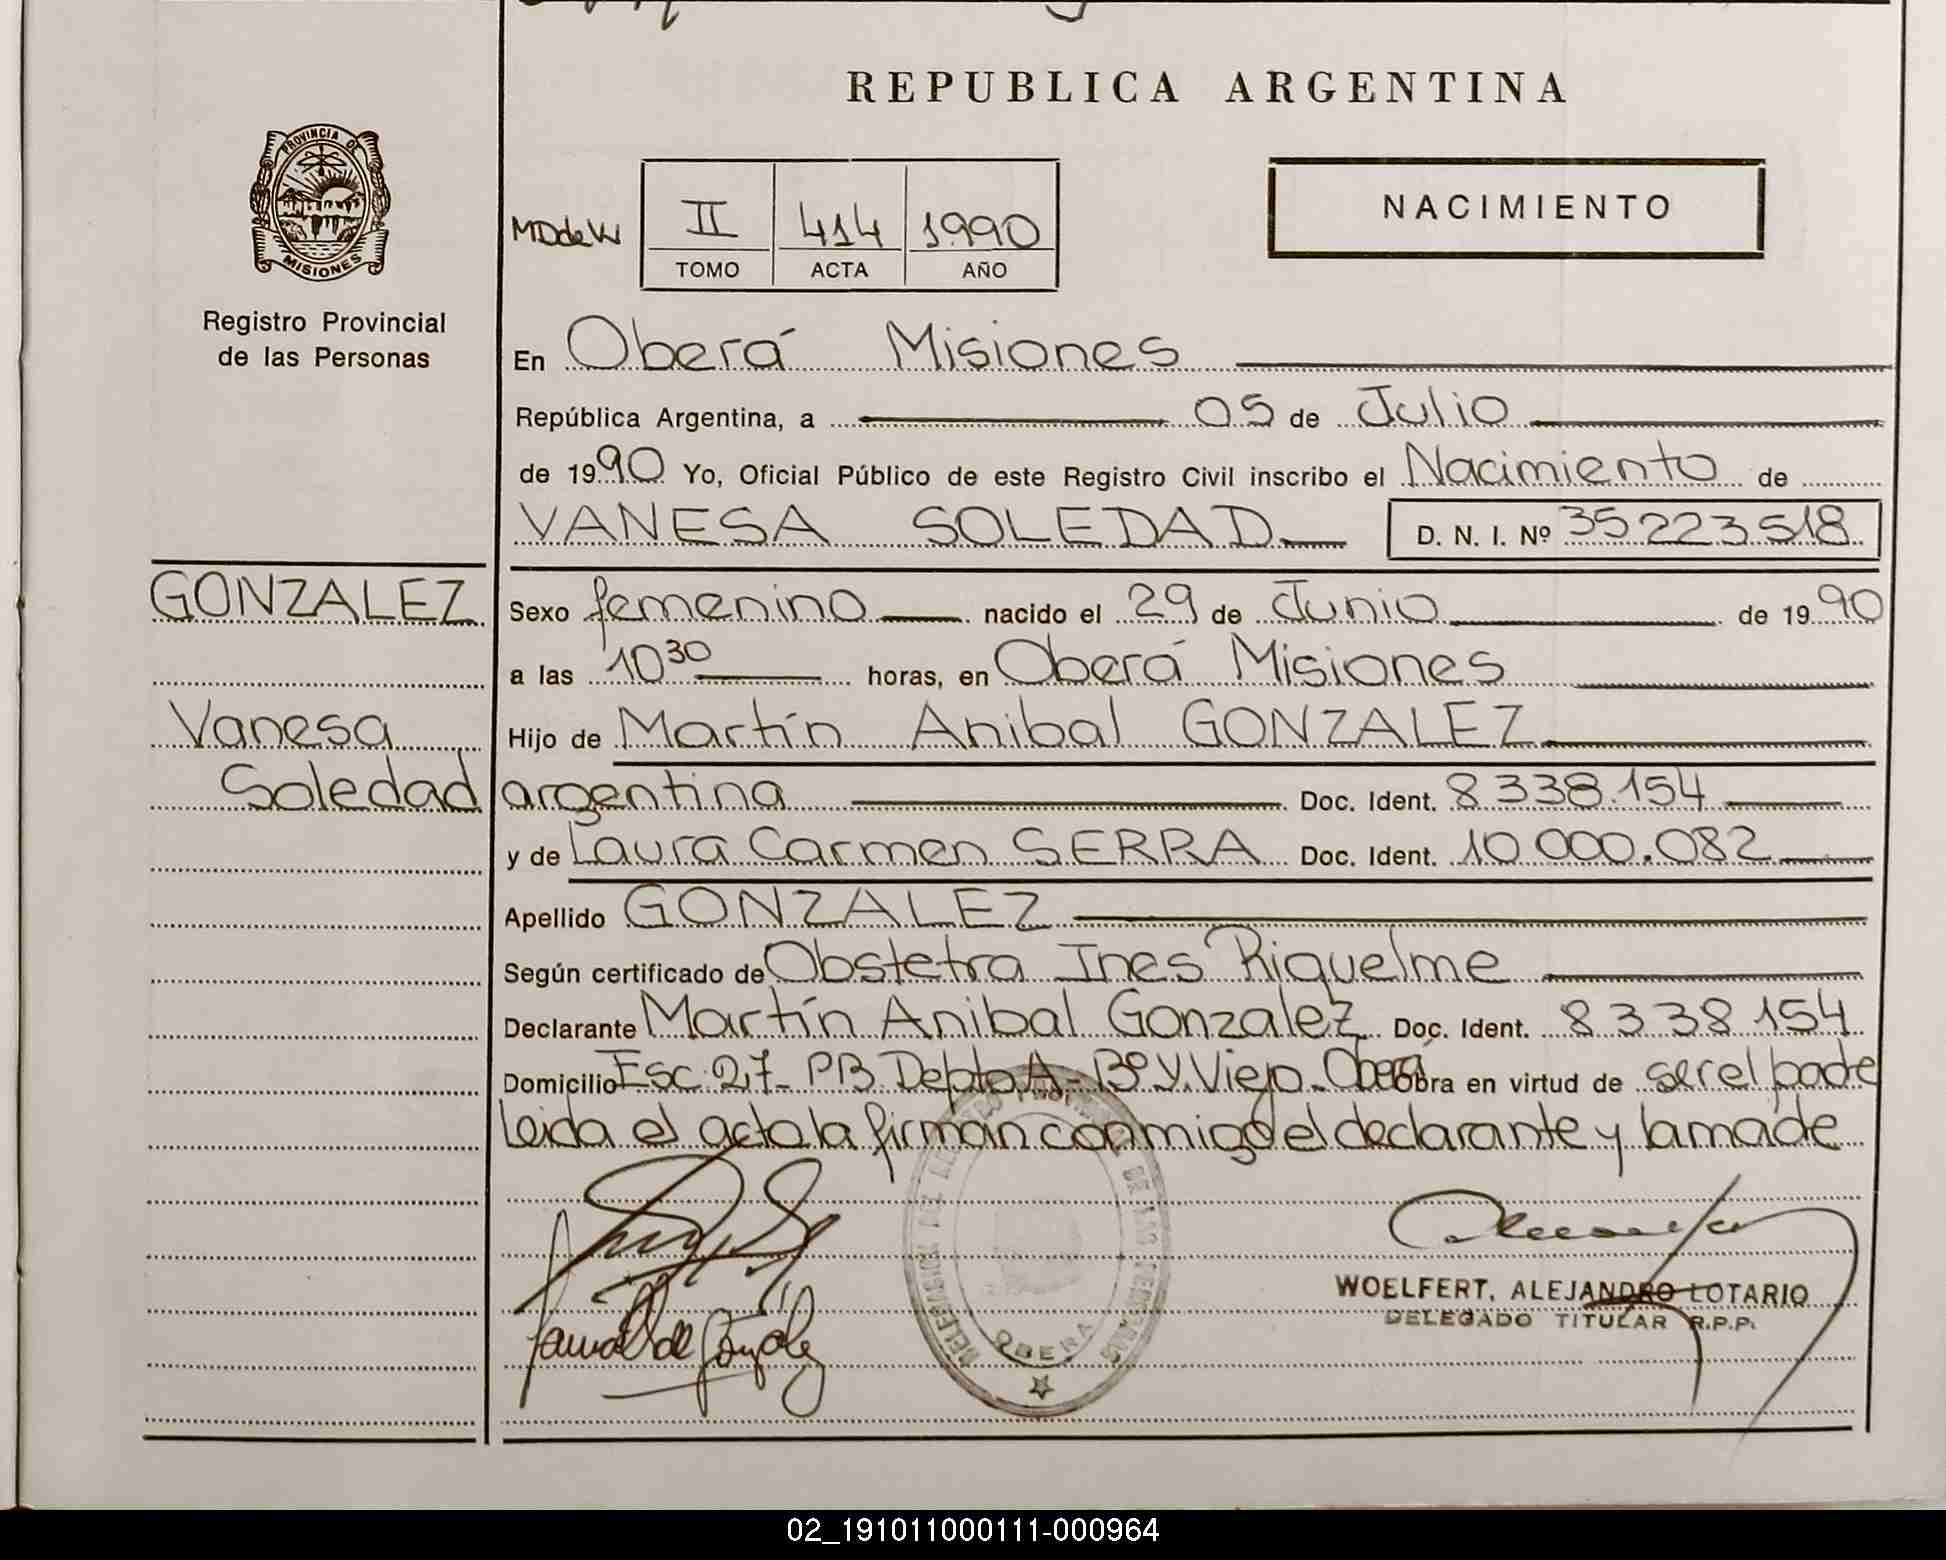 REPUBLICA ARGENTINA
PROVINCIA DE
MISIONES
Registro Provincial
de las Personas
NACIMIENTO
MDdeW II 414 1990
TOMO ACTA AÑO
En Oberá Misiones
República Argentina, a 05 de Julio
de 1990 Yo, Oficial Público de este Registro Civil inscribo el Nacimiento de
VANESA SOLEDAD D. N. I. Nº 35223518
GONZALEZ
Vanesa
Soledad
Sexo femenino nacido el 29 de Junio de 1990
a las 10 30 horas, en Oberá Misiones
Hijo de Martín Anibal GONZALEZ
argentina Doc. Ident. 8338.154
y de Laura Carmen SERRA Doc. Ident. 10 000.082
Apellido GONZALEZ
Según certificado de Obstetra Ines Riquelme
Declarante Martín Anibal Gonzalez Doc. Ident. 8338154
Domicilio Esc. 27- PB Depto A- Bº Y. Viejo- Oberá Obra en virtud de ser el padre
Leida el acta la firman conmigo el declarante y la madre
OBERA
WOELFERT, ALEJANDRO LOTARIO
DELEGADO TITULAR R.P.P.
02_191011000111-000964